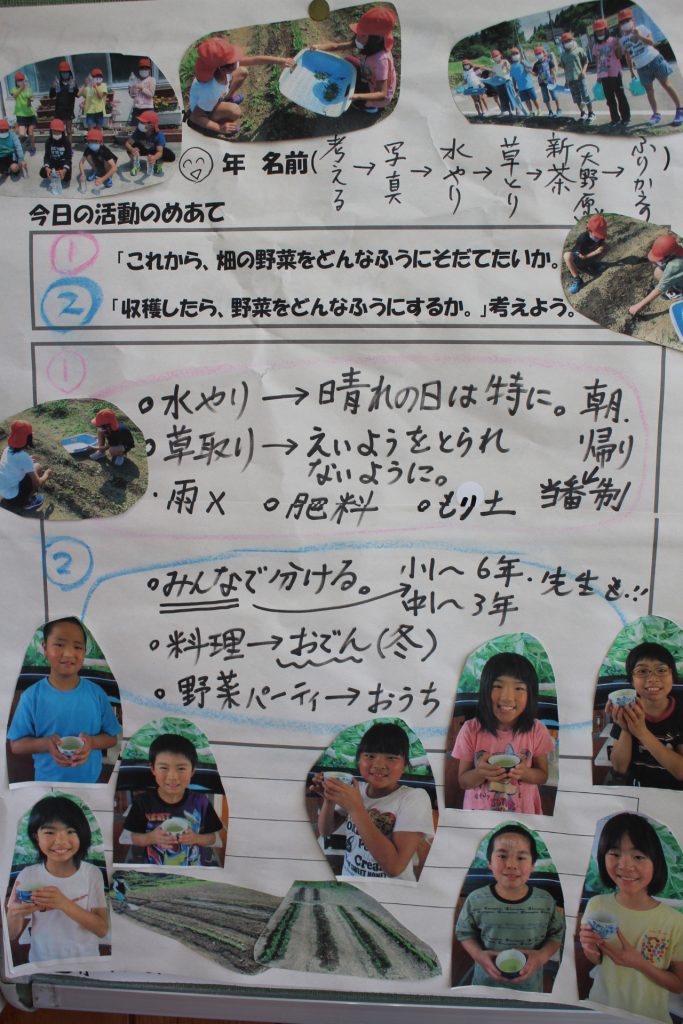 年 名前(考える→写真→水やり→草とり→新茶(大野原)→ふりかえり)
今日の活動のめあて
① 「これから、畑の野菜をどんなふうにそだてたいか。
② 「収穫したら、野菜をどんなふうにするか。」考えよう。
①
○水やり→晴れの日は特に。朝.
○草取り→えいようをとられ 帰り
ないように。
・雨× ○肥料 ○もり土 当番制
②
○みんなで分ける。→小1〜6年.先生も!!
中1〜3年
○料理→おでん(冬)
○野菜パーティ→おうち